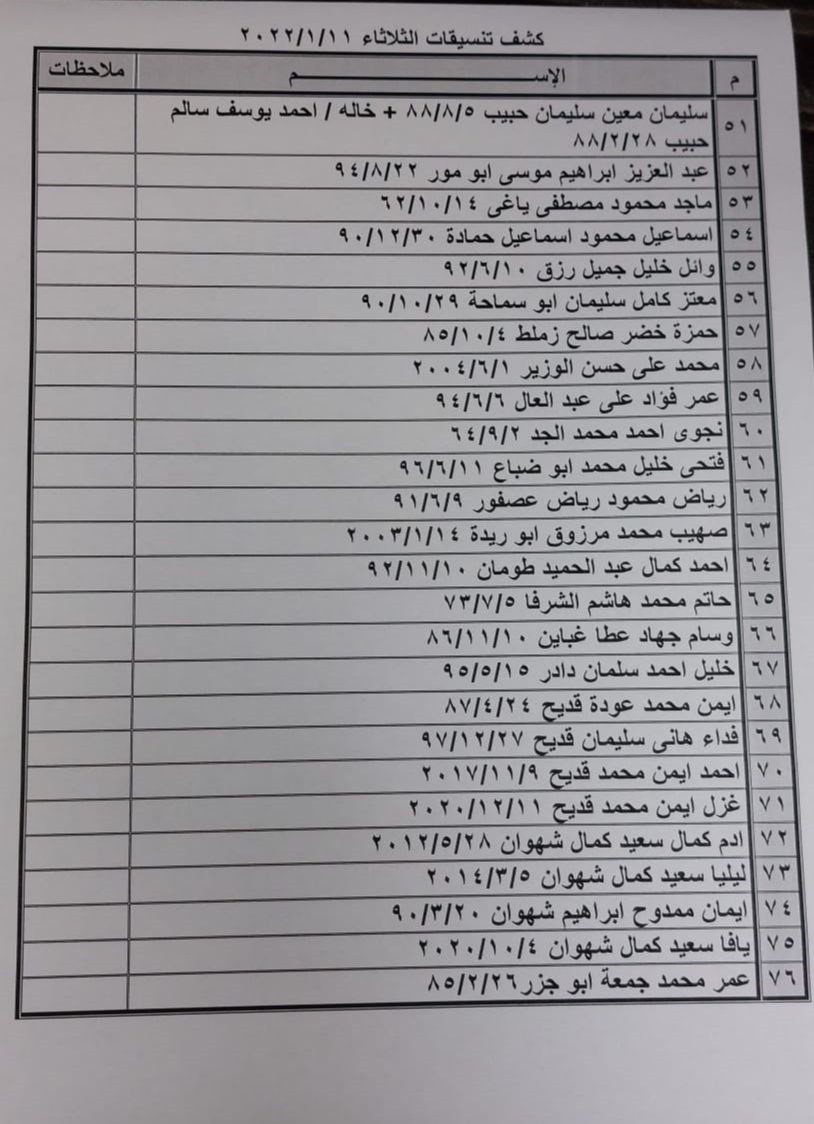 كشف تنسيقات الثلاثاء ٢٠٢٢/١/١١
م الإســـــــــــــم ملاحظات
٥١ سليمان معين سليمان حبيب ٨٨/٨/٥ + خاله / احمد يوسف سالم
حبيب ٨٨/٢/٢٨
٥٢ عبد العزيز ابراهيم موسى ابو مور ٩٤/٨/٢٢
٥٣ ماجد محمود مصطفى ياغى ٦٢/١٠/١٤
٥٤ اسماعيل محمود اسماعيل حمادة ٩٠/١٢/٣٠
٥٥ وائل خليل جميل رزق ٩٢/٦/١٠
٥٦ معتز كامل سليمان ابو سماحة ٩٠/١٠/٢٩
٥٧ حمزة خضر صالح زملط ٨٥/١٠/٤
٥٨ محمد على حسن الوزير ٢٠٠٤/٦/١
٥٩ عمر فؤاد على عبد العال ٩٤/٦/٦
٦٠ نجوى احمد محمد الجد ٦٤/٩/٢
٦١ فتحى خليل محمد ابو ضباع ٩٦/٦/١١
٦٢ رياض محمود رياض عصفور ٩١/٦/٩
٦٣ صهيب محمد مرزوق ابو ريدة ٢٠٠٣/١/١٤
٦٤ احمد كمال عبد الحميد طومان ٩٢/١١/١٠
٦٥ حاتم محمد هاشم الشرفا ٧٣/٧/٥
٦٦ وسام جهاد عطا غباين ٨٦/١١/١٠
٦٧ خليل احمد سلمان دادر ٩٥/٥/١٥
٦٨ ايمن محمد عودة قديح ٨٧/٤/٢٤
٦٩ فداء هانى سليمان قديح ٩٧/١٢/٢٧
٧٠ احمد ايمن محمد قديح ٢٠١٧/١١/٩
٧١ غزل ايمن محمد قديح ٢٠٢٠/١٢/١١
٧٢ ادم كمال سعيد كمال شهوان ٢٠١٢/٥/٢٨
٧٣ ليليا سعيد كمال شهوان ٢٠١٤/٣/٥
٧٤ ايمان ممدوح ابراهيم شهوان ٩٠/٣/٢٠
٧٥ يافا سعيد كمال شهوان ٢٠٢٠/١٠/٤
٧٦ عمر محمد جمعة ابو جزر ٨٥/٢/٢٦